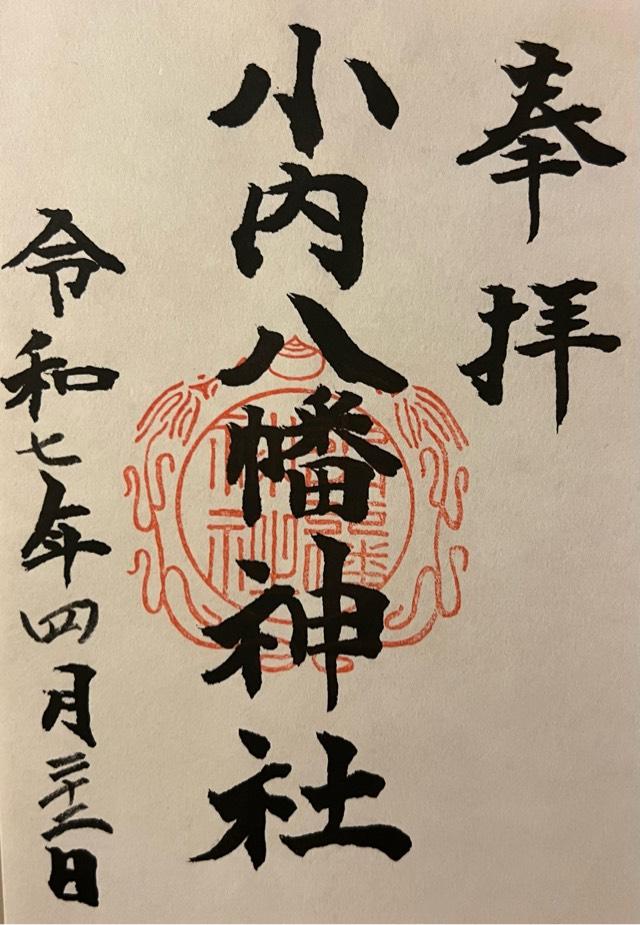 奉拝
小内八幡神社
令和七年四月二十二日